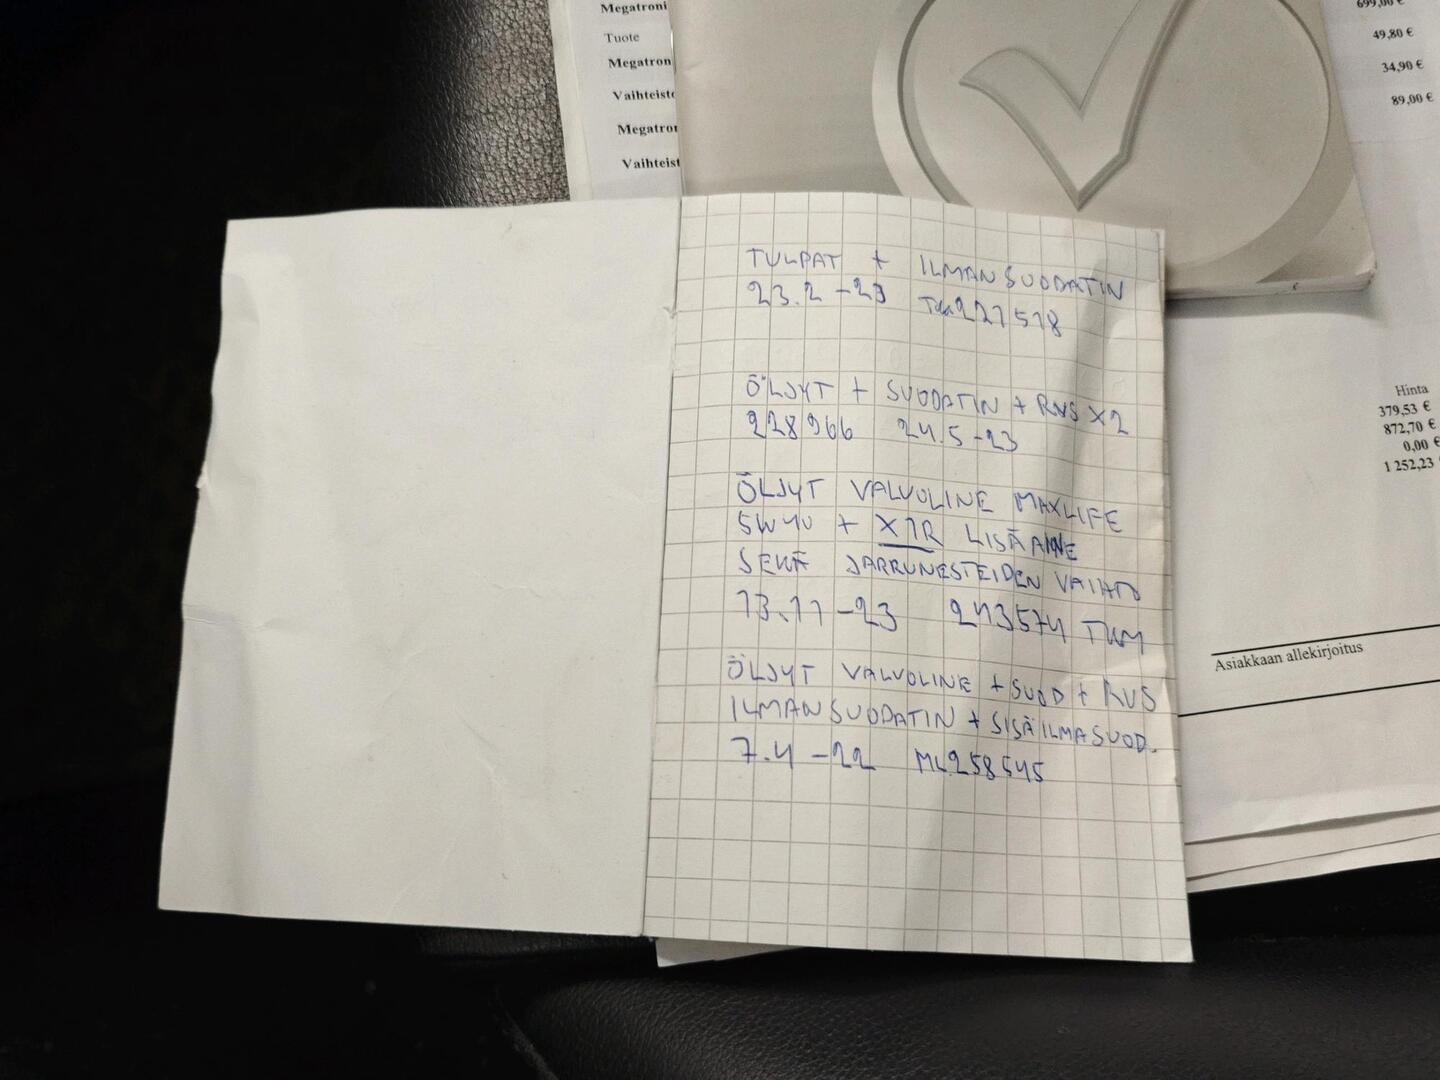 Megatroni
Tuote
Megatron
Vaihteisto
Megatron
Vaihteist
699,00 €
49,80 €
34,90 €
89,00 €
TULPAT + ILMANSUODATIN
23.2 -23 227518
ÖLJYT + SUODATIN + RVS X2
228966 24.5 -23
ÖLJYT VALVOLINE MAXLIFE
5W40 + X1R LISÄAINE
SEKÄ JARRUNESTEIDEN VAIHTO
13.11 -23 243574 TKM
ÖLJYT VALVOLINE + SUOD + RVS
ILMANSUODATIN + SISÄILMASUOD.
7.4 -22 ML258545
Hinta
379,53 €
872,70 €
0,00 €
1 252,23
Asiakkaan allekirjoitus